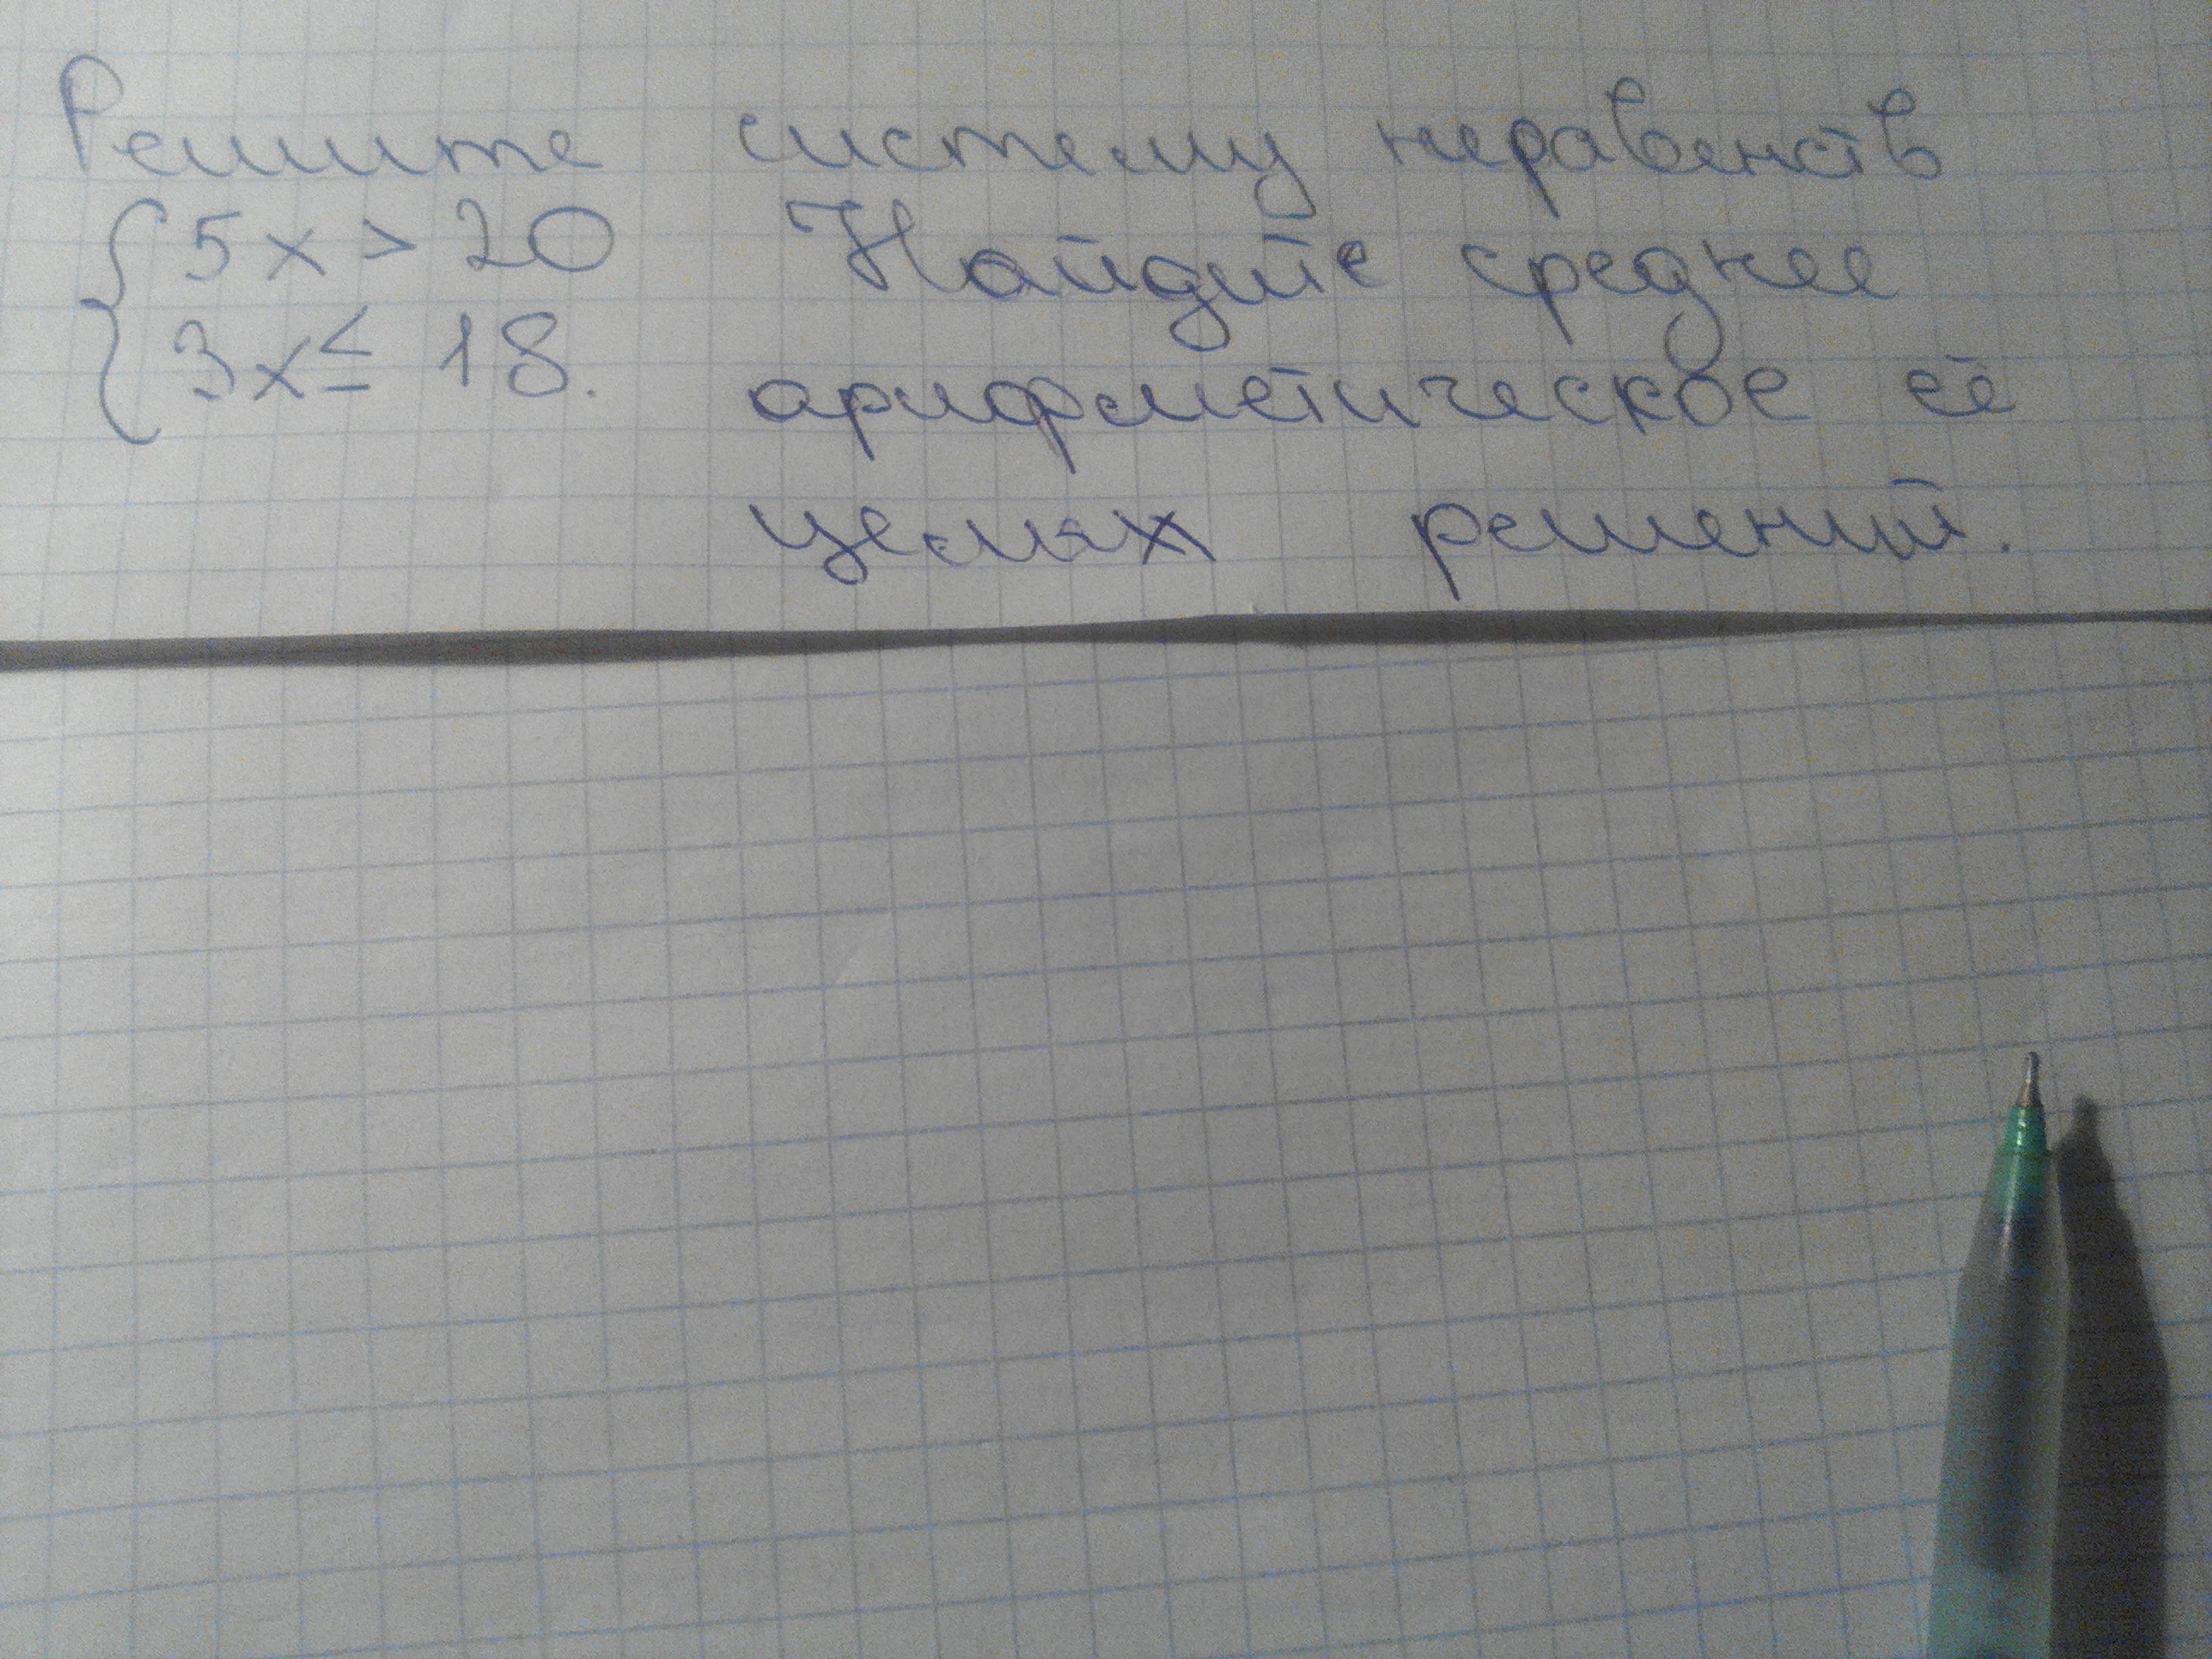 Решите систему неравенств
{ 5x > 20 Найдите среднее
3x ≤ 18. арифметическое её
целых решений.